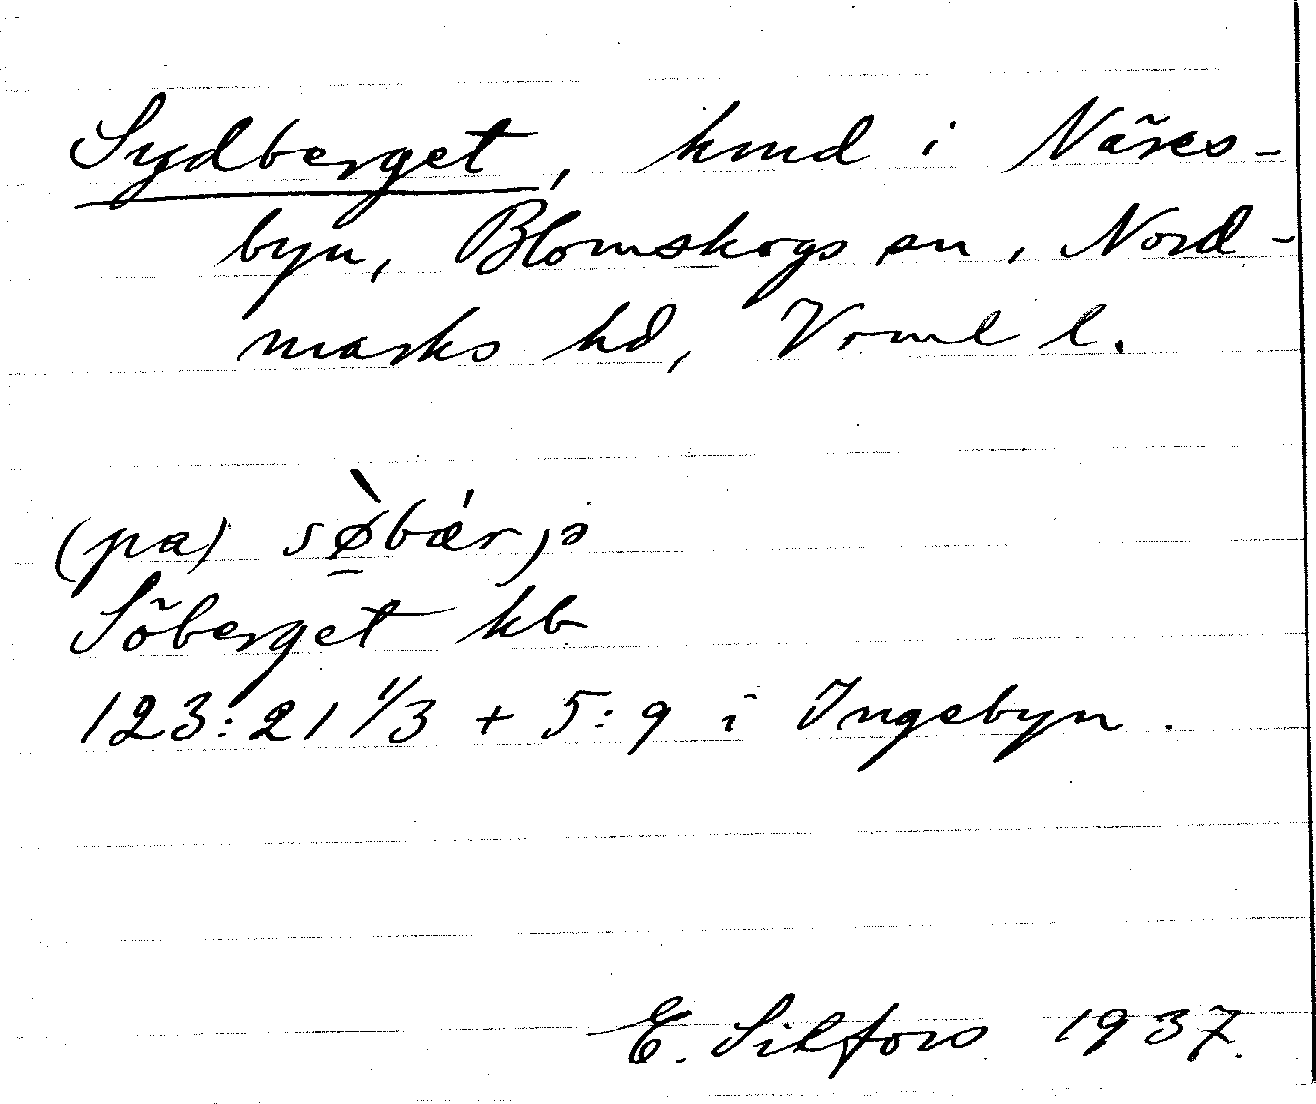 Sydberget, hmd i Näres-
byn, Blomskogs sn, Nord-
marks hd, Vrml l.
(pa)
Söberget kb
123:21 1/3 + 5:9 i Ingebyn.
E. Silfors 1937.